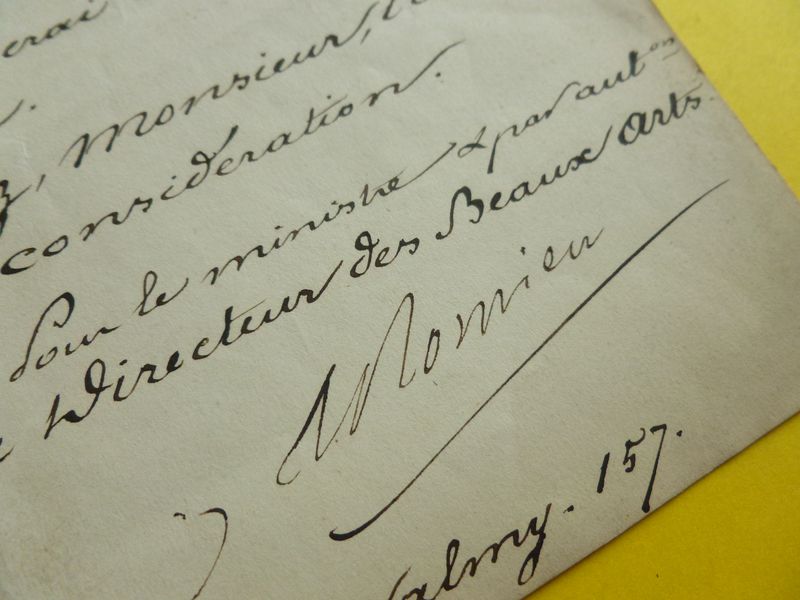 erai
, Monsieur,
consideration.
Pour le ministre & par aut^on
Directeur des Beaux Arts.
Romieu
Valmy. 157.